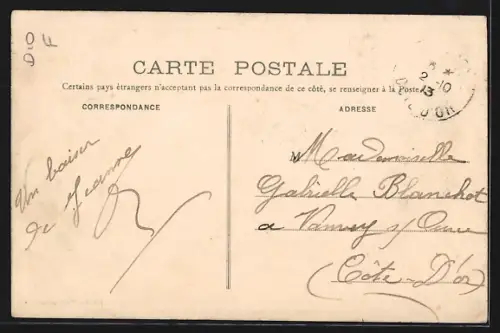 D.O
F
CARTE POSTALE
Certains pays étrangers n'acceptant pas la correspondance de ce côté, se renseigner à la Poste
CORRESPONDANCE
ADRESSE
2 -10
13
D'OR
Un baiser
de Jeanne
M Mademoiselle
Gabrielle Blanchot
a Vanvey s/ Ource
(Côte-D'or)